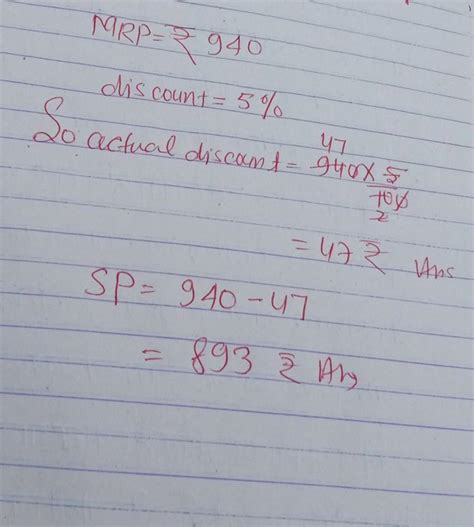 MRP = ₹ 940
discount = 5%
So actual discant = 940 × 5/100
47
2
= 47 ₹ Ans
SP = 940 - 47
= 893 ₹ Ans